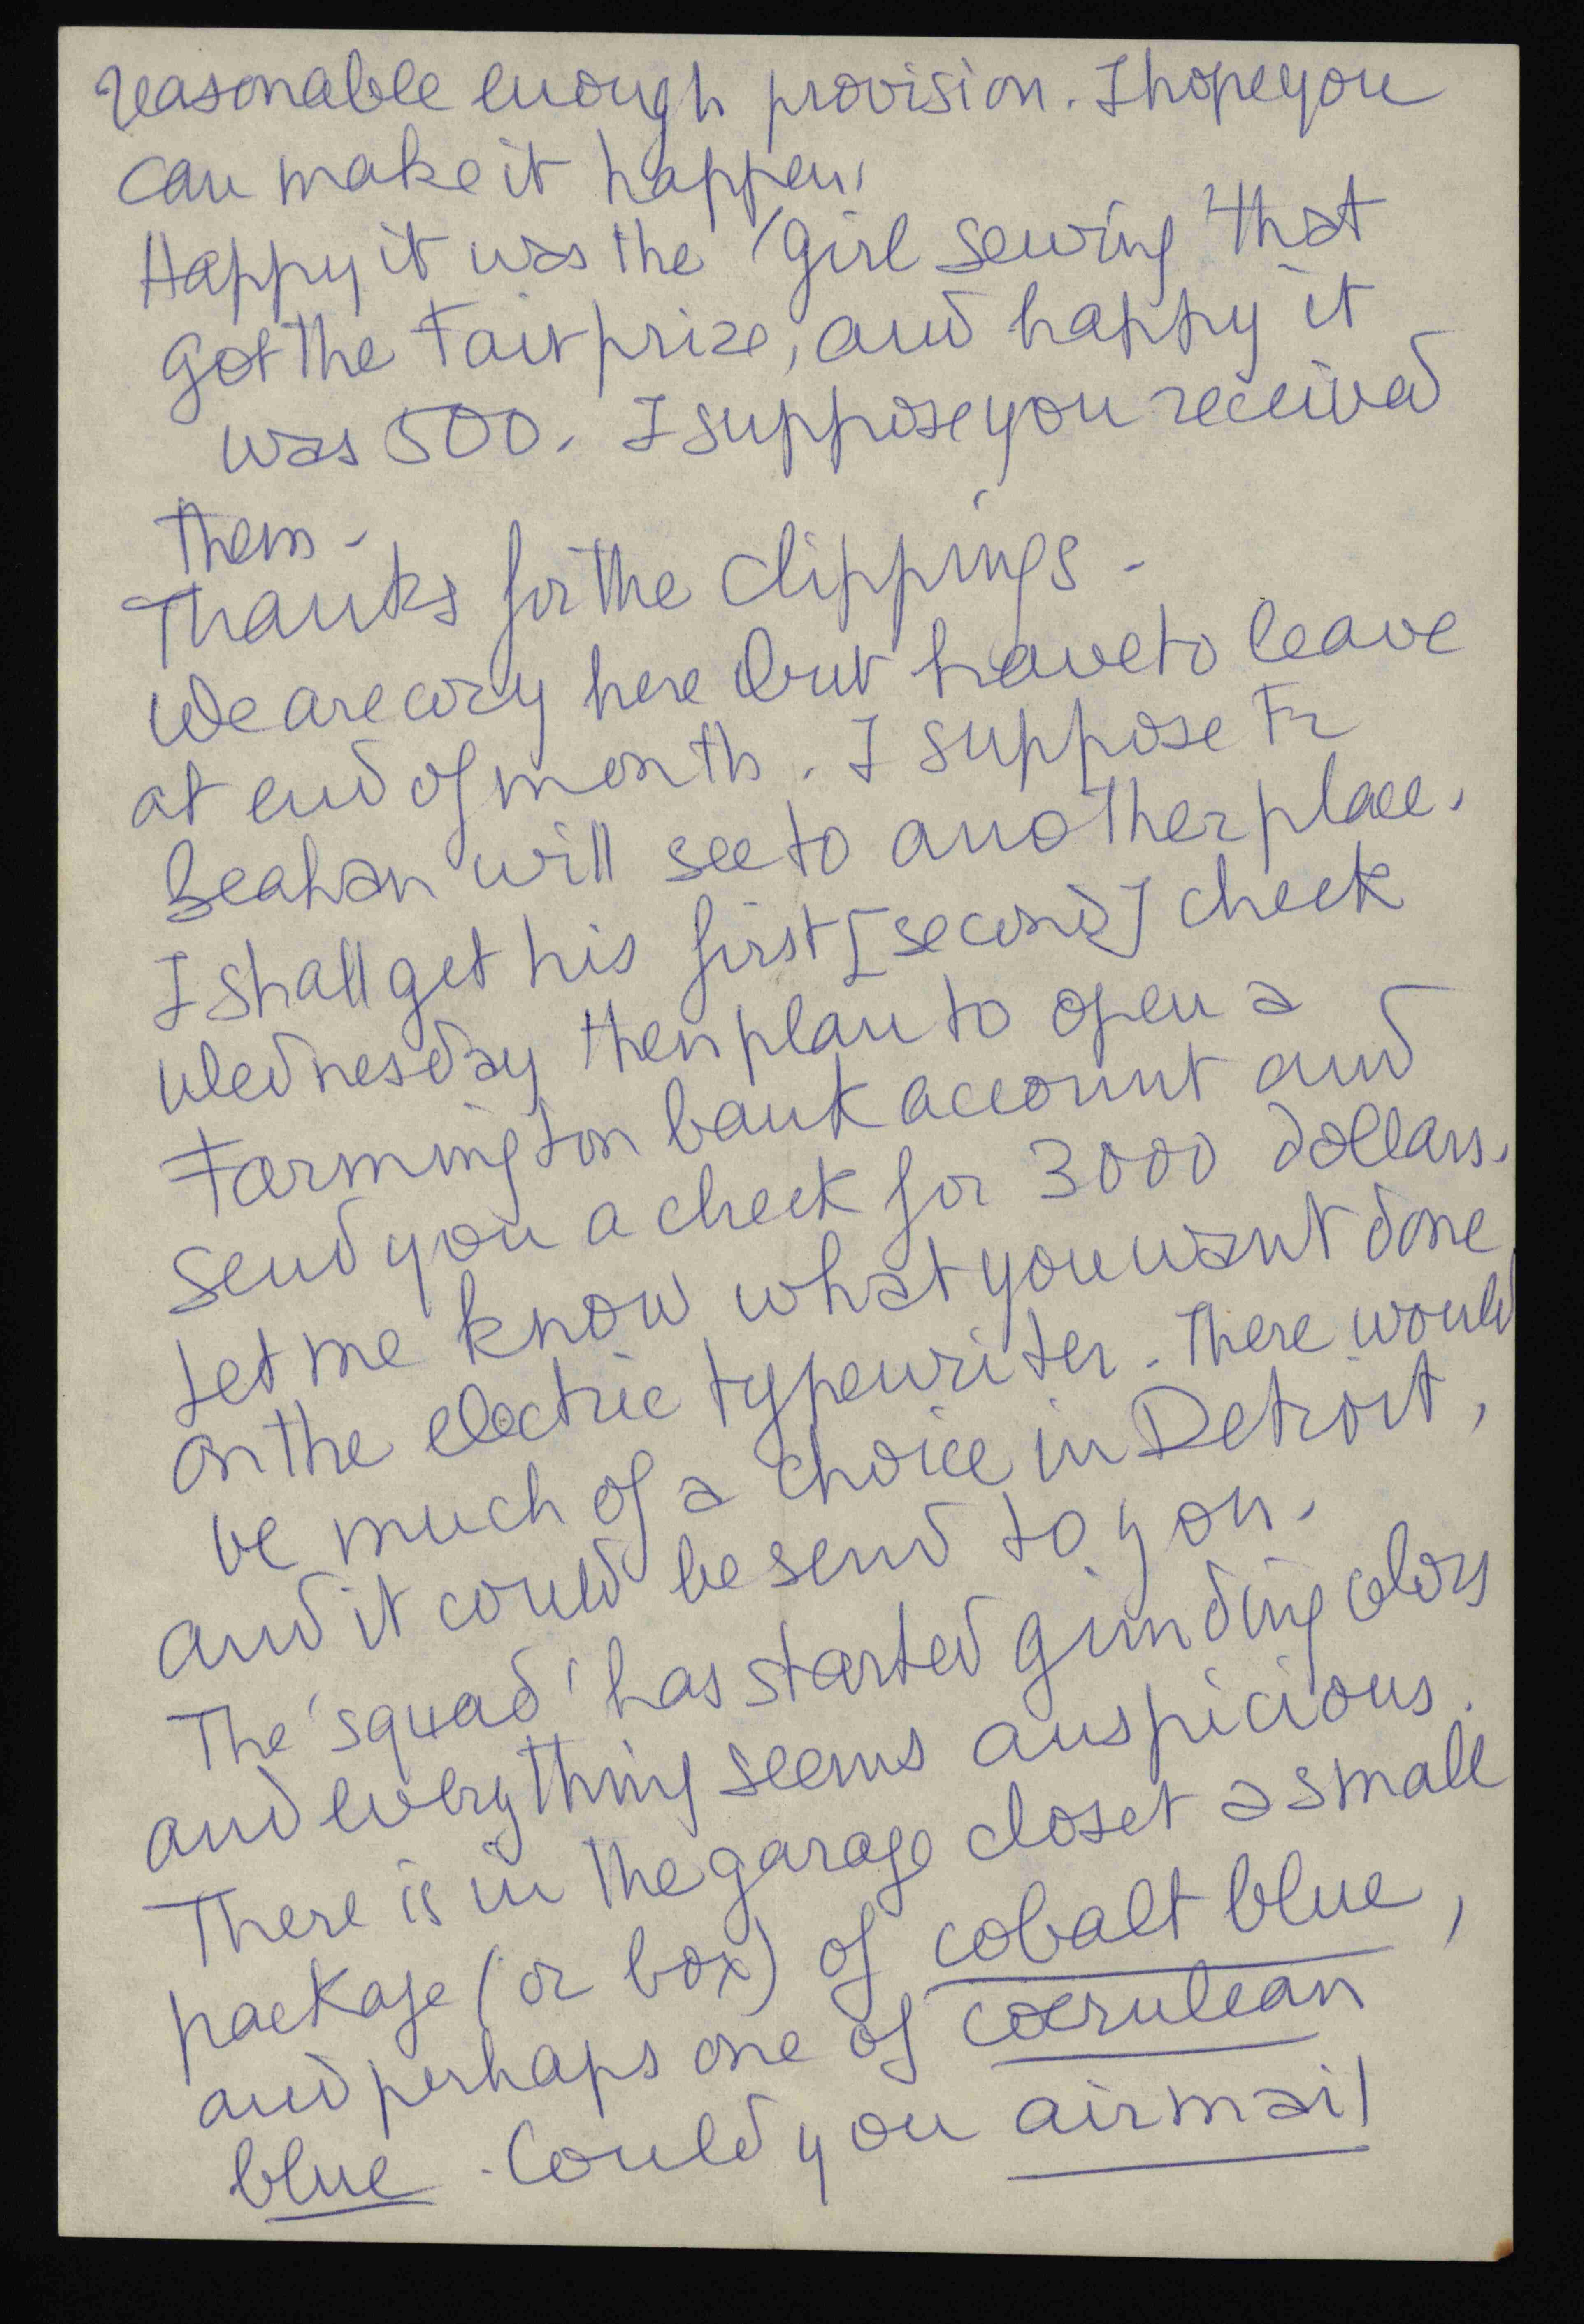 reasonable enough provision. I hope you
can make it happen.
Happy it was the 'girl sewing' that
got the Fair prize, and happy it
was 500. I suppose you received
them.
Thanks for the clippings.
We are cozy here but have to leave
at end of month. I suppose Fr
Beahan will see to another place.
I shall get his first [second] check
Wednesday then plan to open a
Farmington bank account and
send you a check for 3000 dollars.
Let me know what you want done
on the electric typewriter. There would
be much of a choice in Detroit,
and it could be send to you.
The 'squad' has started grinding colors
and everything seems auspicious.
There is in the garage closet a small
package (or box) of cobalt blue,
and perhaps one of coerulean
blue. Could you airmail